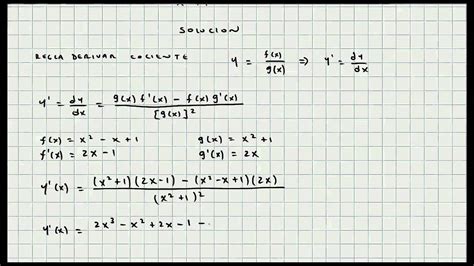 SOLUCION
REGLA DERIVAR COCIENTE y = f(x)/g(x) ⇒ y' = dy/dx
y' = dy/dx = g(x) f'(x) - f(x) g'(x) / [g(x)]²
f(x) = x² - x + 1 g(x) = x² + 1
f'(x) = 2x - 1 g'(x) = 2x
y'(x) = (x²+1)(2x-1) - (x²-x+1)(2x) / (x²+1)²
y'(x) = 2x³ - x² + 2x - 1 -